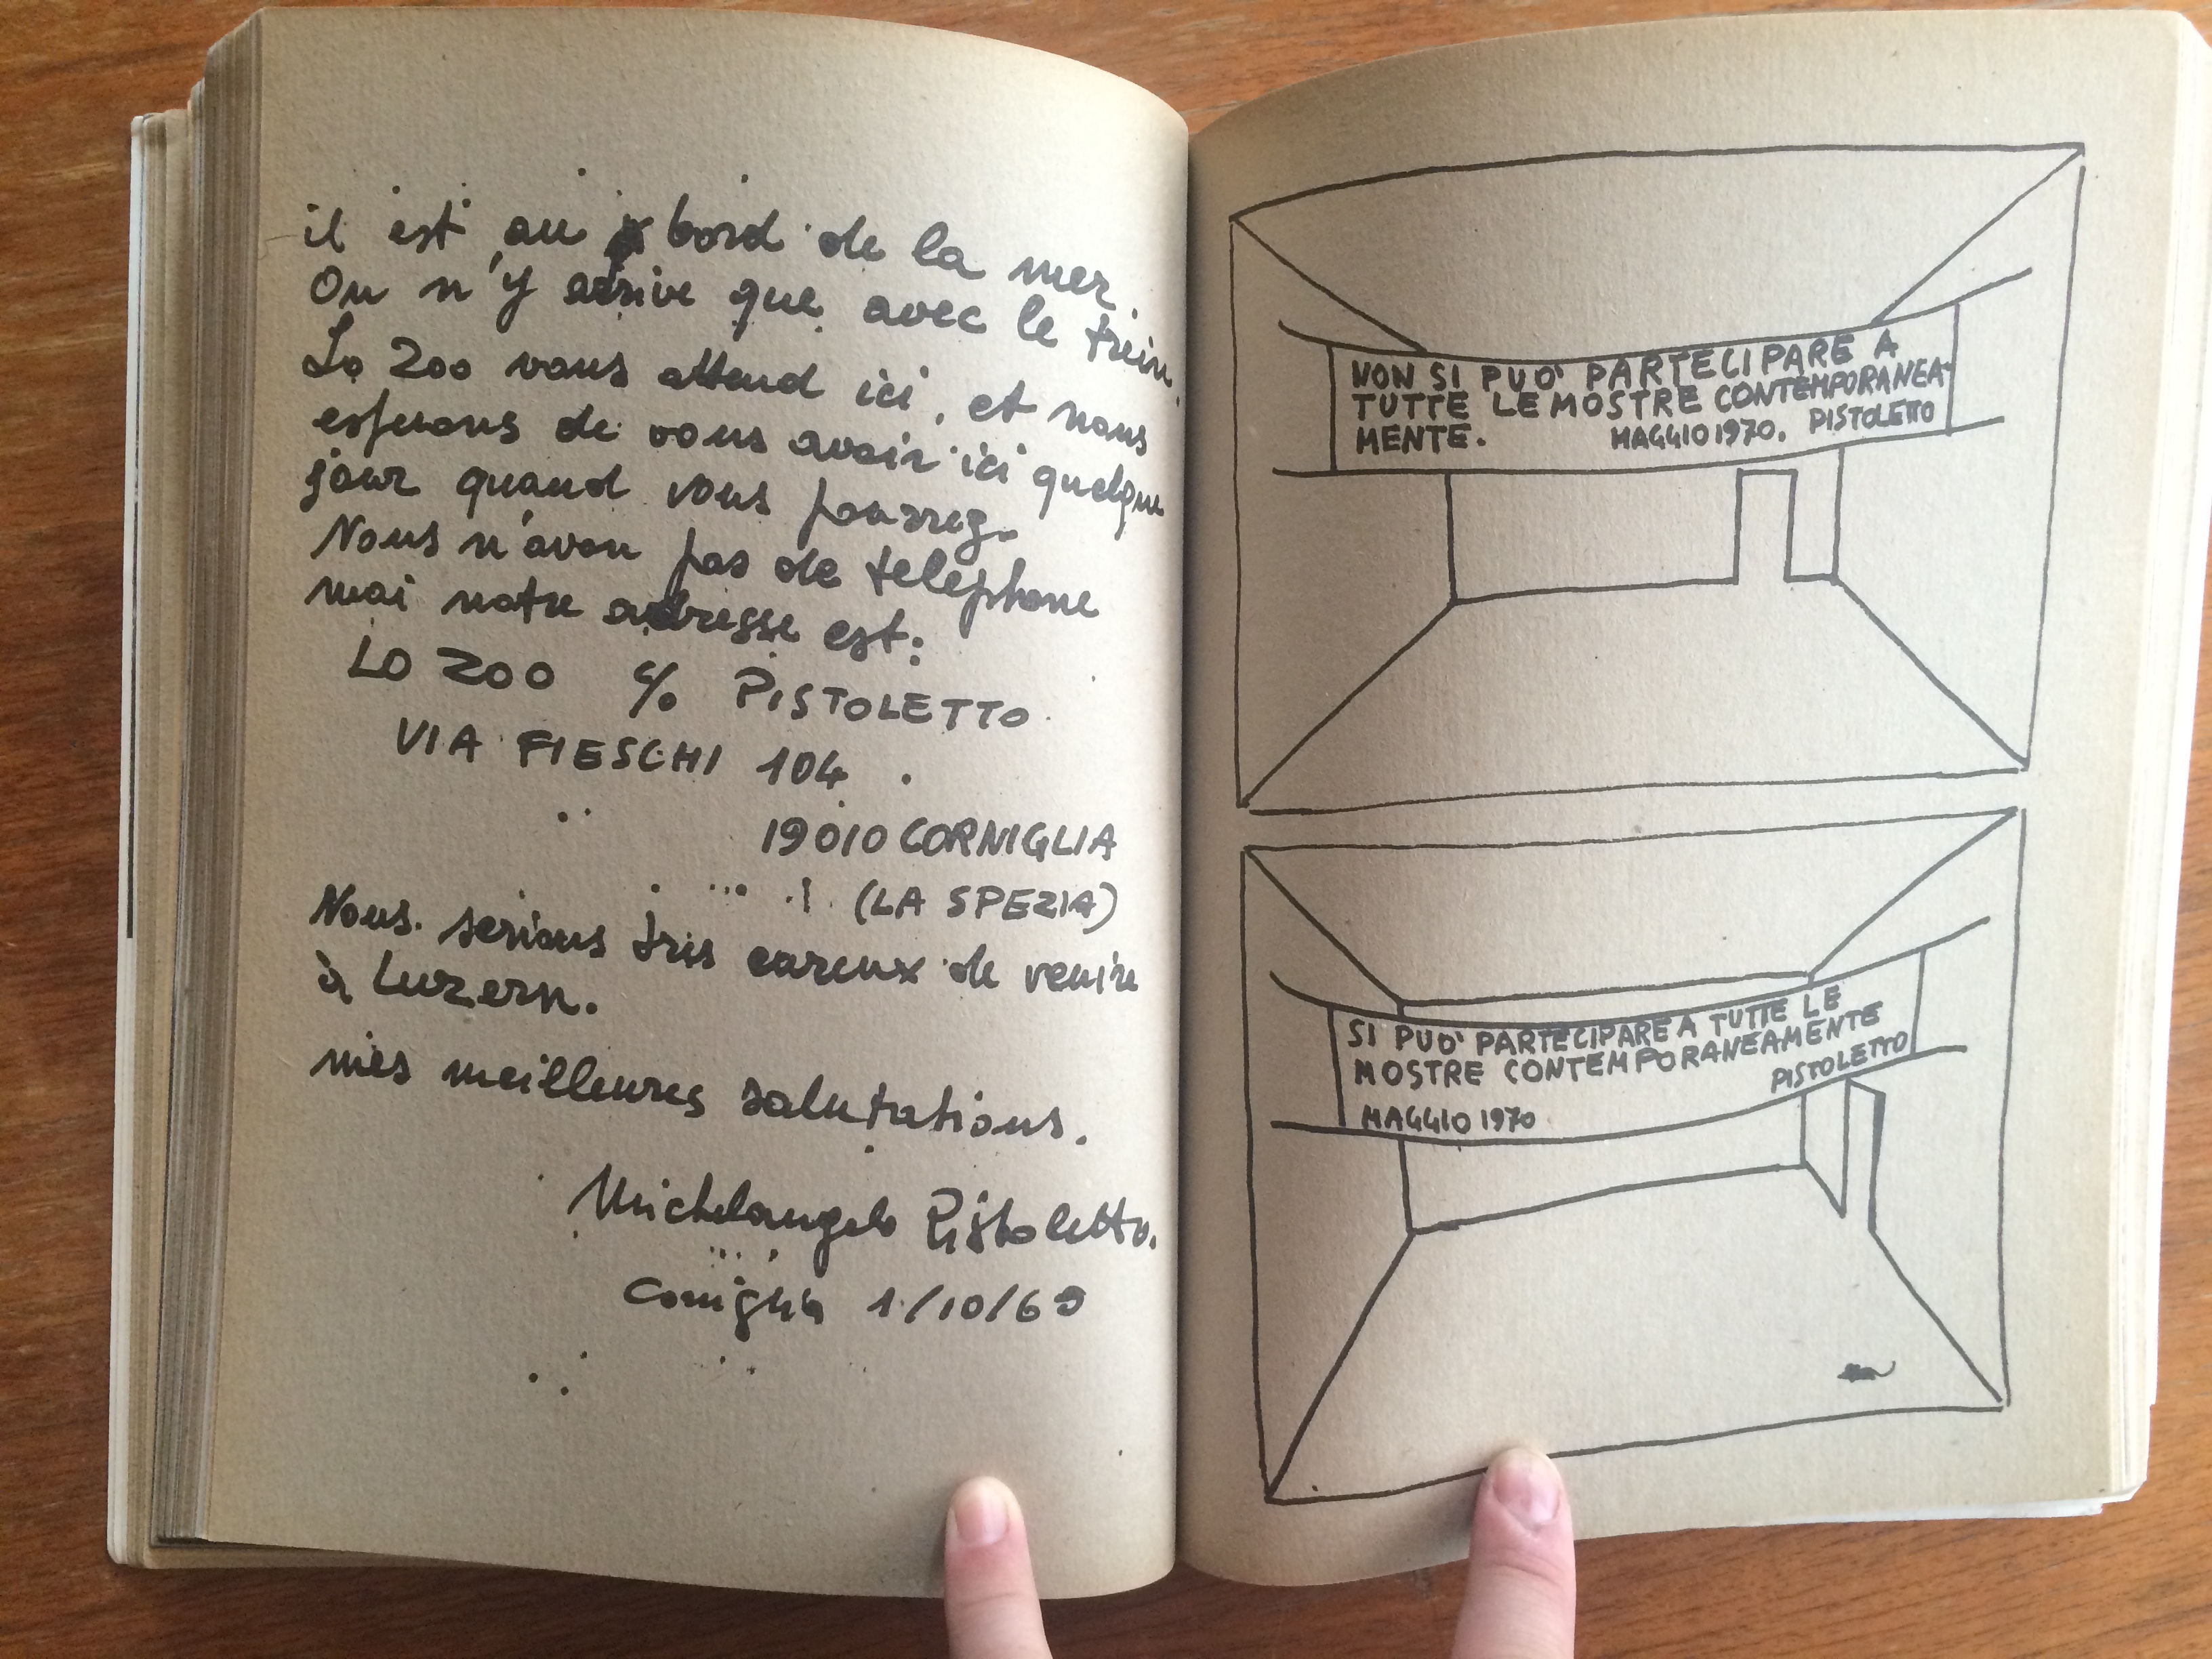 il est au bord de la mer.
On n'y arrive que avec le trein.
Lo Zoo vous attend ici, et nous
esperons de vous avoir ici quelque
jour quand vous pourrez.
Nous n'avon pas de telephone
mai notre adresse est:
LO ZOO c/o PISTOLETTO
VIA FIESCHI 104
19010 CORNIGLIA
(LA SPEZIA)
Nous serions tres eareux de venire
à Luzern.
mes meilleures salutations.
Michelangelo Pistoletto.
Corniglia 1/10/69
NON SI PUO' PARTECIPARE A
TUTTE LE MOSTRE CONTEMPORANEA-
MENTE. MAGGIO 1970. PISTOLETTO
SI PUO' PARTECIPARE A TUTTE LE
MOSTRE CONTEMPORANEAMENTE
PISTOLETTO
MAGGIO 1970